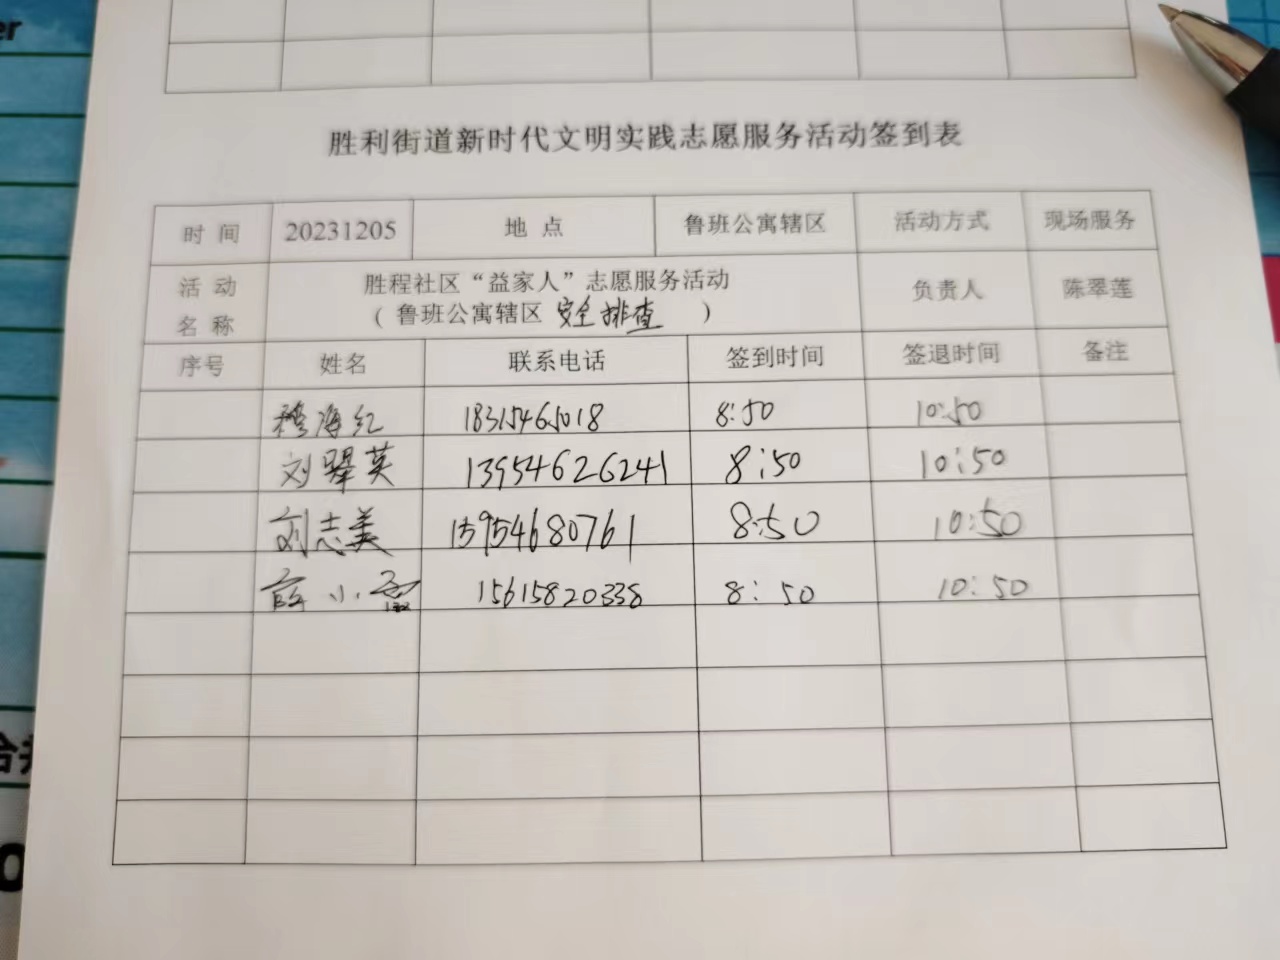 er
胜利街道新时代文明实践志愿服务活动签到表
时 间 20231205 地 点 鲁班公寓辖区 活动方式 现场服务
活 动 名 称 胜程社区“益家人”志愿服务活动 负责人 陈翠莲
( 鲁班公寓辖区 安全排查 )
序号 姓名 联系电话 签到时间 签退时间 备注
穆海红 18315465018 8:50 10:50
刘翠英 13954626241 8:50 10:50
刘志美 15954680761 8:50 10:50
薛小霞 15615820338 8:50 10:50